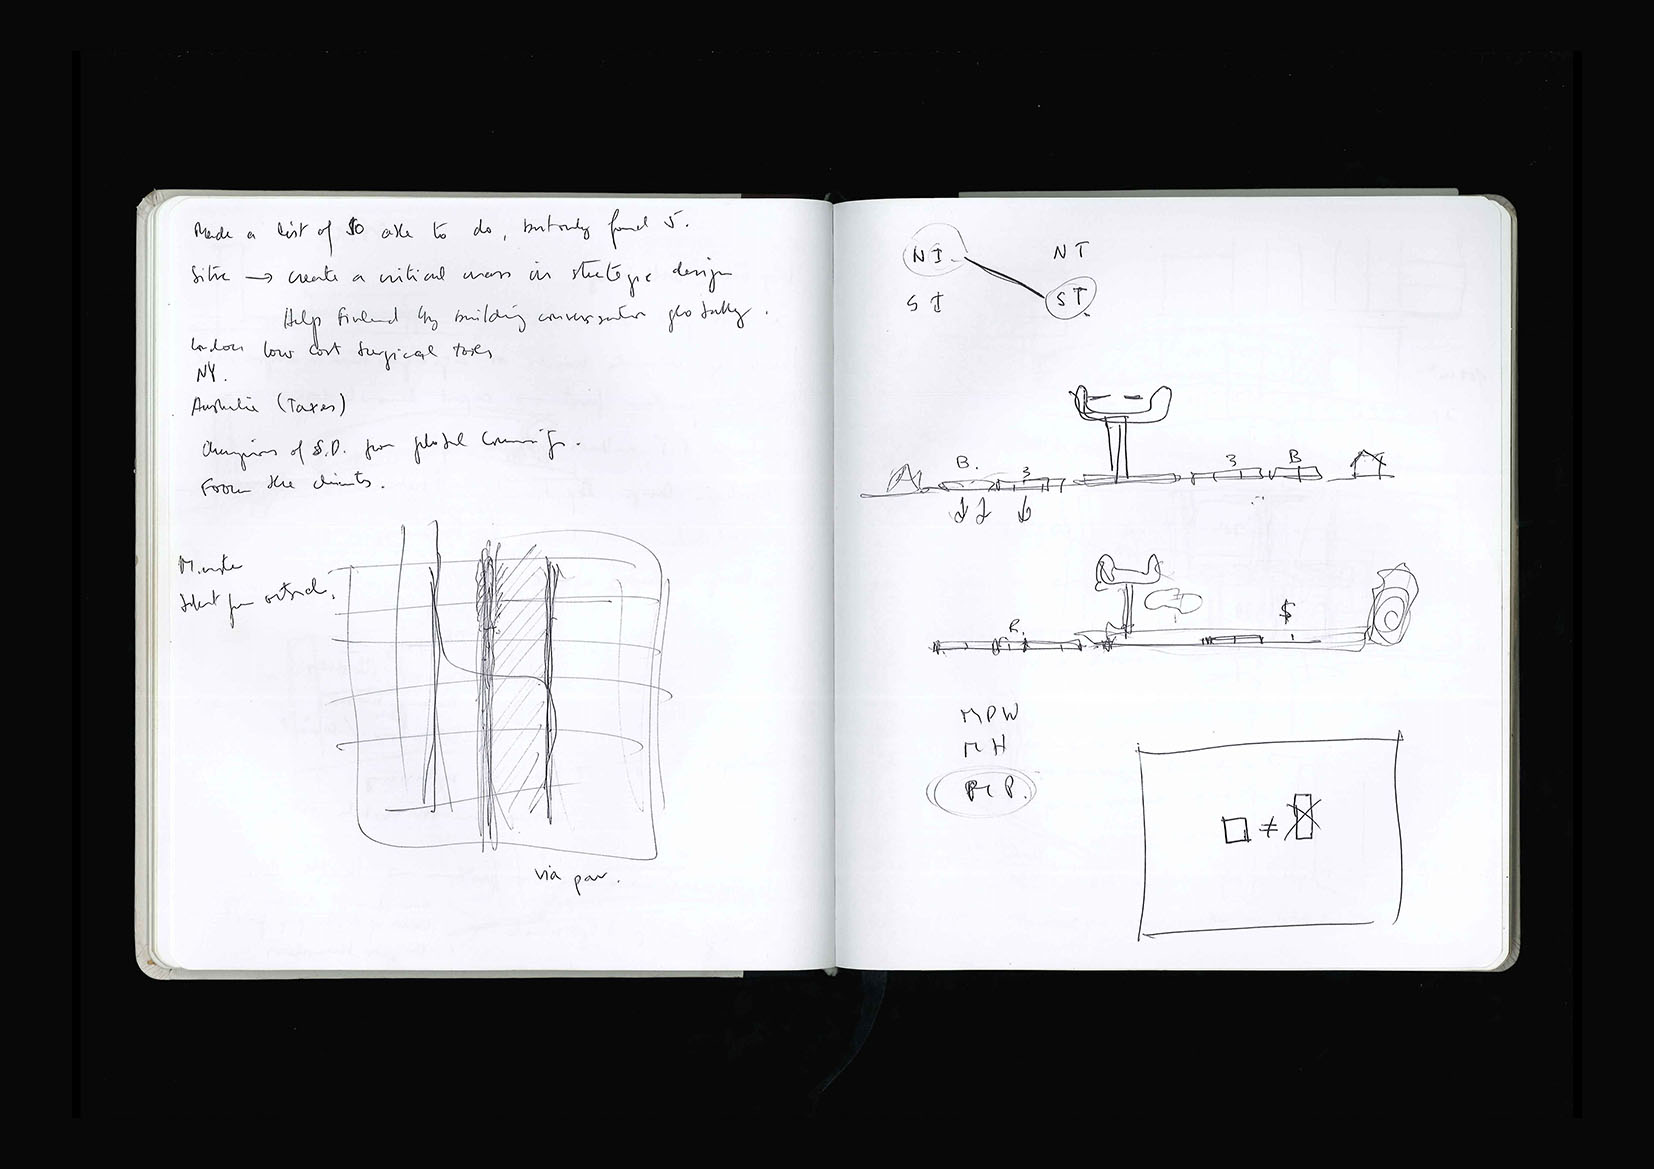 Made a list of 10 able to do, but only found 5.
Sitra → create a critical mass in strategic design
Help Finland by building conversation globally.
London low cost surgical tools
NY.
Australia (Taxes)
Champions of S.D. from global
From the clients.
from outside.
via pov.
NI NT
SI ST
B. 3 3 B
R. $
MPW
MH
P.
□ ≠